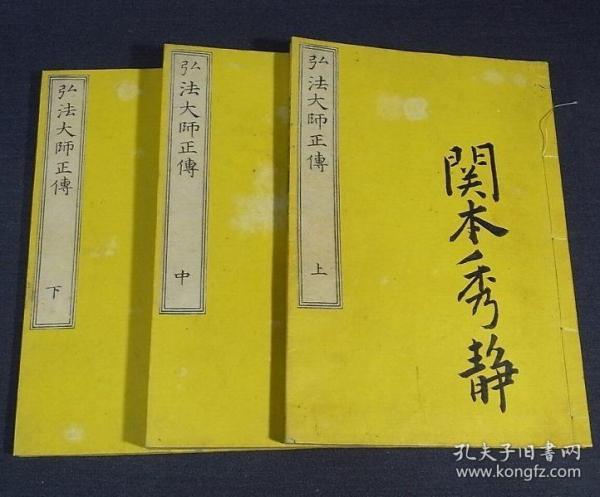 弘法大師正傳
上
関本秀静
弘法大師正傳
中
弘法大師正傳
下
孔夫子旧书网
www.kongfz.com